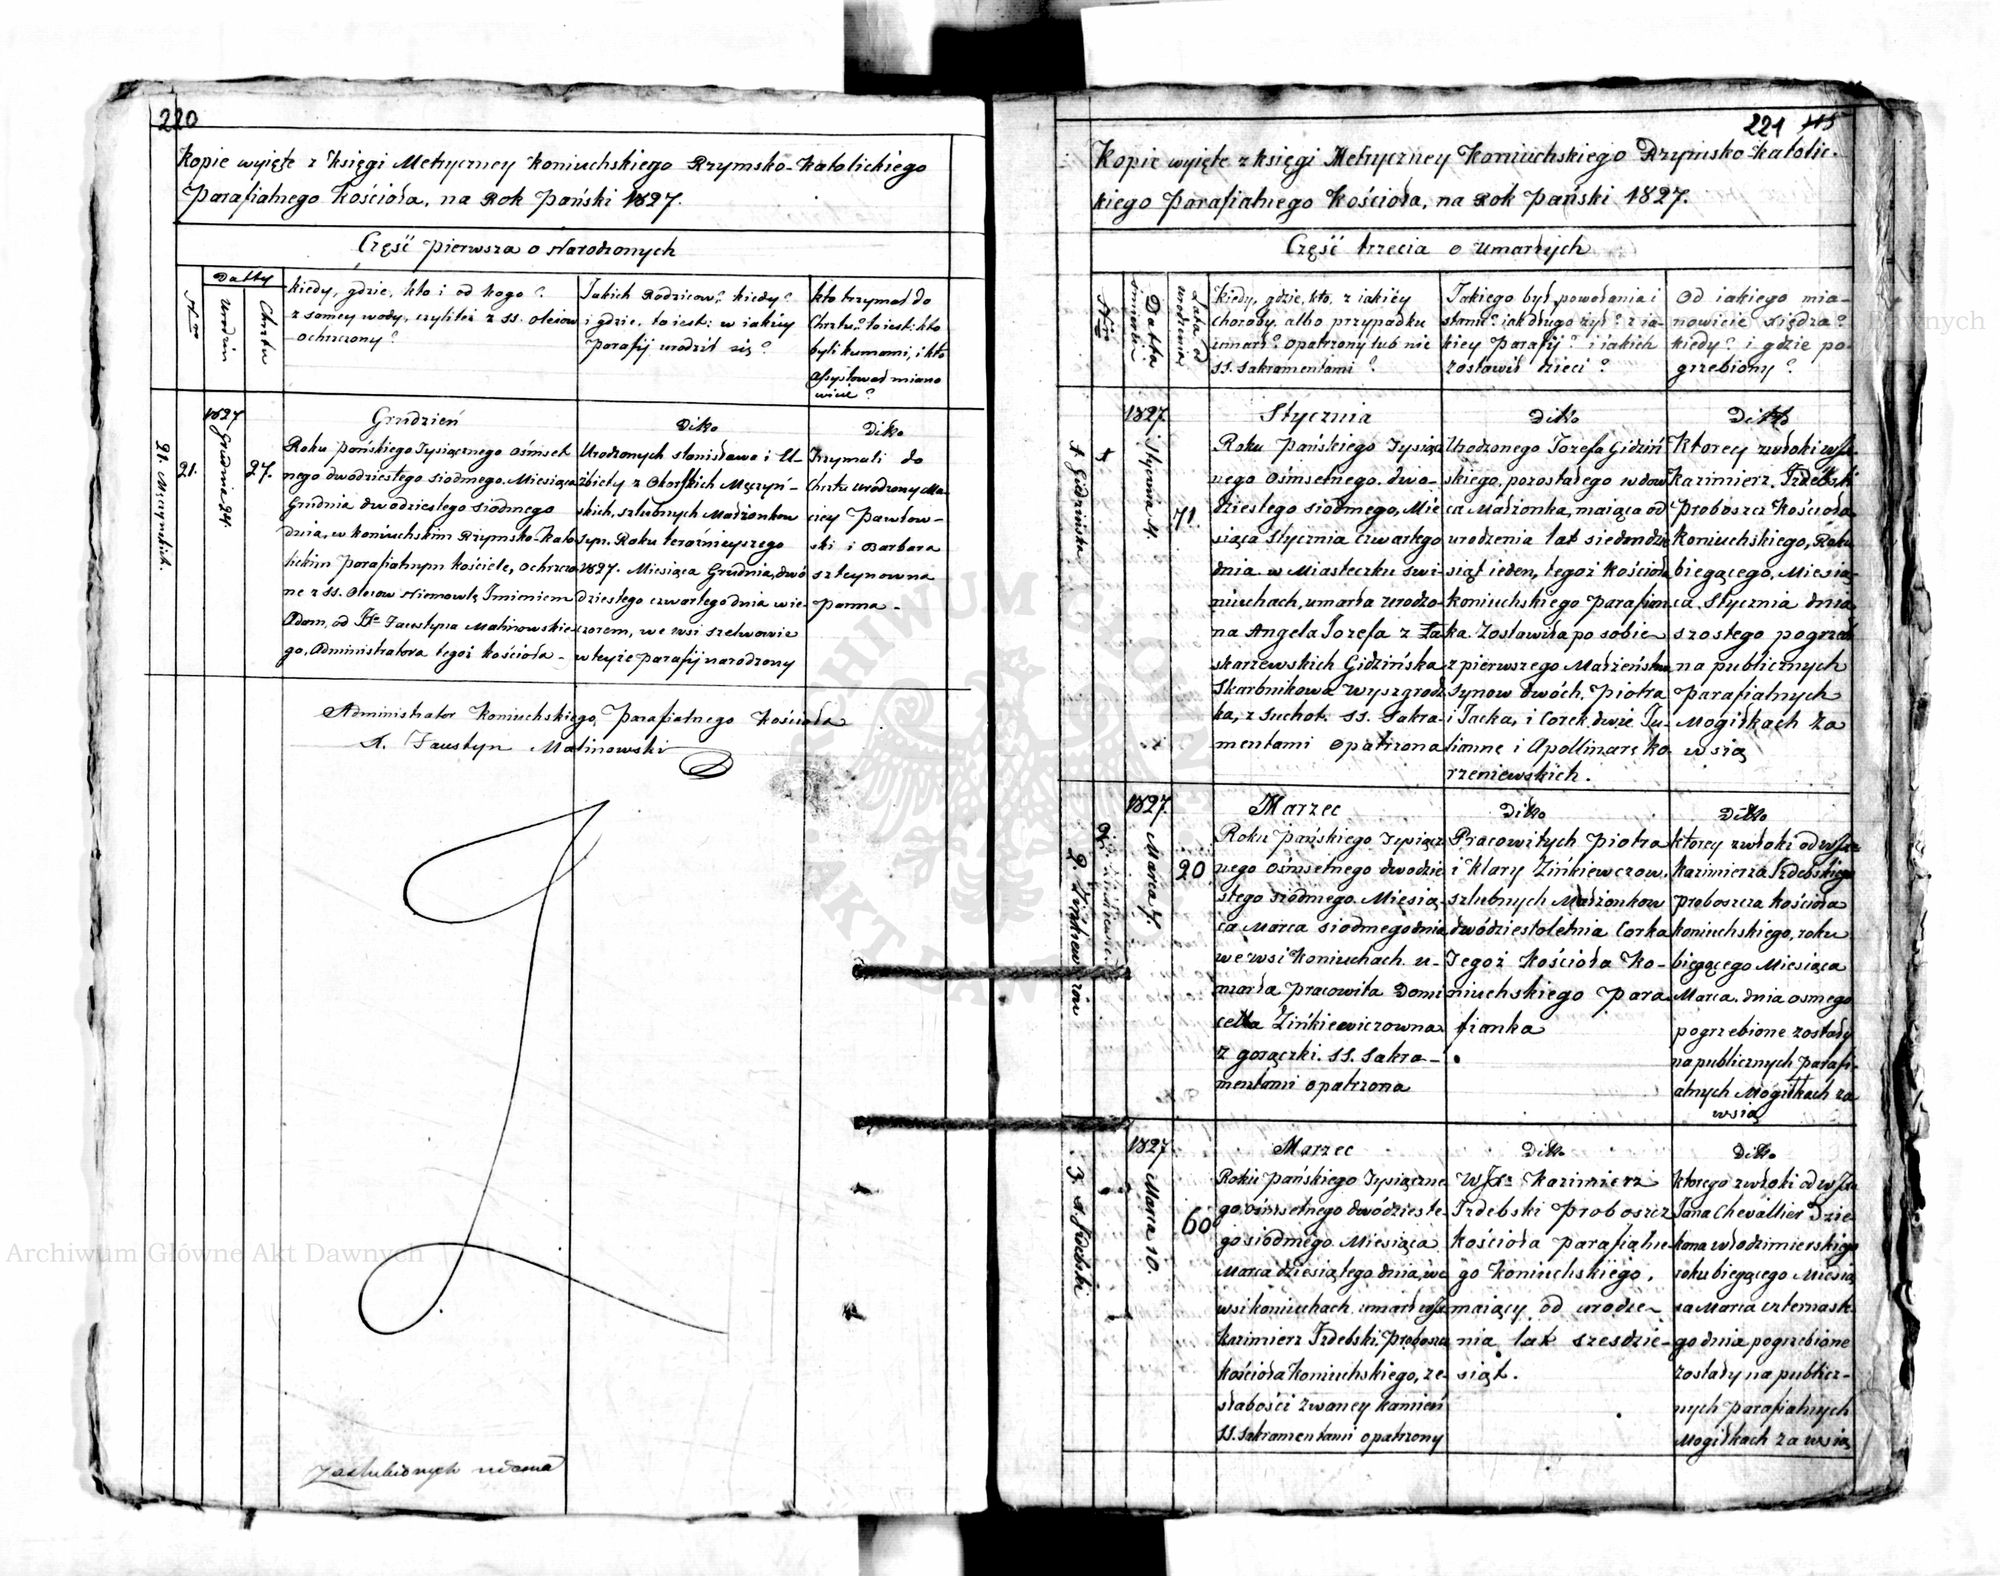 220
Kopie wyięte z Księgi Metryczney Koniuchskiego Rzymsko-Katolickiego
Parafialnego Kościoła, na Rok Pański 1827.
Część pierwsza o Narodzonych
Nro
Datty
Urodzin
Chrztu
Kiedy, gdzie, kto i od kogo?
z samey wody, czyliteż z SS. Oleiow
ochrzczony?
Jakich Rodzicow? kiedy?
i gdzie, to iest: w iakiey
Parafij urodził się?
kto trzymał do
Chrztu? to iest: kto
byli kumami, i kto
Assystował miano
wicie?
21. Męczyńskich.
21.
1827 Grudnia 24
27.
Grudzień
Roku Pańskiego Tysiącznego Ośmset
nego dwódziestego siodmego. Miesiąca
Grudnia dwodziestego siodmego
dnia, w Koniuchskim Rzymsko-Kato
lickim Parafialnym kościele, ochrzczo
ne z SS. Oleiow Niemowlę Imieniem
Adam, od Xdza Faustyna Malinowskie
go, Administratora tegoż kościoła -
Ditto
Urodzonych Stanisława i El-
żbiety z Oborskich Męczyń-
skich, szlubnych Małżonkow
syn. Roku teraznieyszego
1827. Miesiąca Grudnia, dwó
dziestego czwartego dnia wie-
czorem, we wsi Szelwowie
w teyże parafij narodzony
Ditto
Trzymali do
Chrztu Urodzony Ma-
ciey Pawłow-
ski i Barbara
Szteynowna
panna -
Administrator Koniuchskiego, Parafialnego Kościoła
X. Faustyn Malinowski
Zaslubionych niema
221 115
Kopie wyięte z księgi Metryczney Koniuchskiego Rzymsko-katolic-
kiego Parafialnego Kościoła, na Rok Pański 1827.
Część trzecia o umarłych
Nro
Datta
śmierci
Lata od
urodzenia
Kiedy, gdzie, kto, z iakiey
choroby, albo przypadku
umarł? opatrzony lub nie
SS. Sakramentami?
Jakiego był powołania i
stanu? iak długo żył? z ia-
kiey Parafij? i iakich
zostawił dzieci?
Od iakiego mia-
nowicie Xiędza?
kiedy? i gdzie po-
grzebiony?
1. Gidzińska
1
1827. Stycznia 4.
71.
Stycznia
Roku Pańskiego Tysiącz
nego Ośmsetnego. dwo-
dziestego siodmego, Mie
siąca Stycznia czwartego
dnia w Miasteczku Swi-
niuchach, umarła Urodzo-
na Angela Jozefa z Ła
skarzewskich Gidzińska
Skarbnikowa Wyszgrodz
ka, z Suchot. SS. Sakra-
mentami opatrzona
Ditto
Urodzonego Jozefa Gidziń
skiego, pozostałego wdow
ca Małżonka, maiąca od
urodzenia lat siedmdzie
siąt ieden, tegoż kościoła
Koniuchskiego parafian
ka. Zostawiła po sobie
z pierwszego Małżeństwa
synow dwóch, Piotra
i Jacka, i Corek dwie Ju-
liannę i Apollinarę Ko
rzeniewskich.
Ditto
Ktorey zwłoki w Jx
Kazimierz Trzdebski
Proboszcz Kościoła
Koniuchskiego, Roku
biegącego, Miesią-
ca Stycznia dnia
szostego pogrzeb
na publicznych
parafialnych
Mogiłkach za
wsią
2. Zińkiewiczow.
2
1827. Marca 7.
20
Marzec
Roku Pańskiego Tysiącz
nego Ośmsetnego dwodzie
stego siodmego. Miesią
ca Marca siodmego dnia
we wsi Koniuchach. u-
marła Pracowita Domi
cella Zińkiewiczowna
z gorączki. SS. Sakra-
mentami opatrzona
Ditto
Pracowitych Piotra
i Klary Zińkiewczow.
szlubnych Małżonkow
dwódziestoletnia Corka
Tegoż Kościoła Ko-
niuchskiego Para
fianka
Ditto
ktorey zwłoki od WJxa
Kazimierza Trzdebskiego
proboszcza Kościoła
koniuchskiego, roku
biegącego Miesiąca
Marca, dnia osmego
pogrzebione zostały
na publicznych parafi-
alnych Mogiłkach za
wsią
3.
1827. Marca 10.
60
Marzec
Roku Pańskiego Tysiączne
go, ośmsetnego dwódzieste-
go siodmego. Miesiąca
Marca dziesiątego dnia, we
wsi Koniuchach. umarł WJx
Kazimierz Trzdebski, Proboszcz
kościoła Koniuchskiego, ze
słabości zwaney kamień
SS. Sakramentami opatrzony
Ditto
WJx: Kazimierz
Trzdebski Proboszcz
Kościoła parafialne
go Koniuchskiego,
maiący od urodze-
nia lat szesdzie-
siąt.
Ditto
ktorego zwłoki od WJxa
Jana Chevallier Dzie-
kana Włodzimierskiego
roku biegącego Miesią
ca Marca czternaste
go dnia pogrzebione
zostały na publicz-
nych parafialnych
Mogiłkach za wsią
Archiwum Główne Akt Dawnych
Archiwum Główne Akt Dawnych
ARCHIWUM GŁÓWNE AKT DAWNYCH